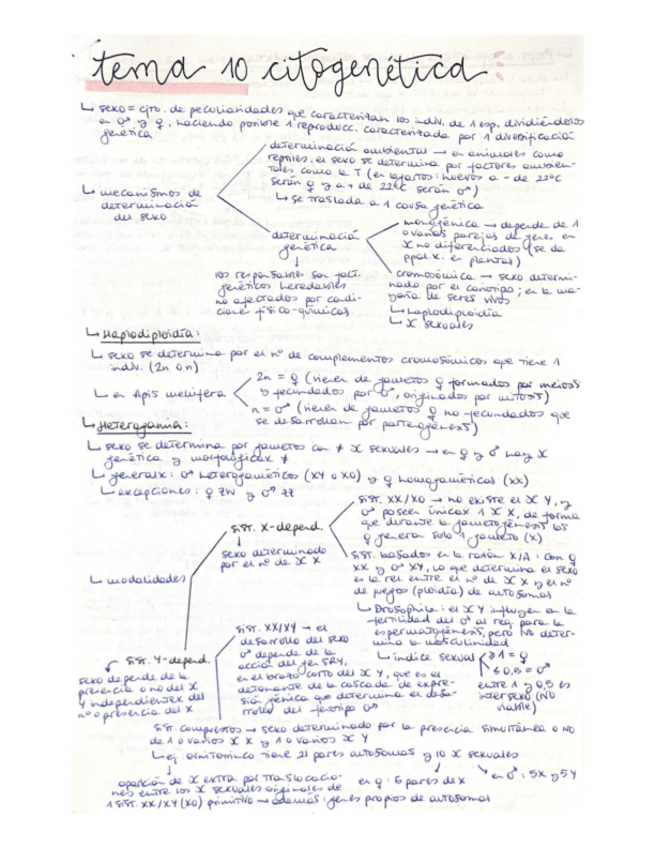 tema 10 citogenética
↳ sexo = cjto. de peculiaridades que caracterizan los indiv. de 1 esp. dividiéndolos
en ♂ y ♀, haciendo posible 1 reproducc. caracterizada por 1 diversificación
genética
↳ mecanismos de
determinación
del sexo
determinación ambiental → en animales como
reptiles, el sexo se determina por factores ambien-
tales como la T (en lagartos: huevos a - de 22ºC
serán ♀ y a + de 22ºC serán ♂)
↳ se traslada a 1 causa genética
determinación
genética
↓
los responsables son fact.
genéticos heredables
no afectados por condi-
ciones físico-químicas
monogénica → depende de 1
o varias parejas de genes en
X no diferenciados (se da
ppal.x. en plantas)
cromosómica → sexo determi-
nado por el cariotipo; en la ma-
yoría de seres vivos
↳ haplodiploidía
↳ X sexuales
↳ Haplodiploidía:
↳ sexo se determina por el nº de complementos cromosómicos que tiene 1
indiv. (2n o n)
↳ en Apis mellifera
2n = ♀ (vienen de gametos ♀ formados por meiosis
y fecundados por ♂, originados por mitosis)
n = ♂ (vienen de gametos ♀ no fecundados que
se desarrollan por partenogénesis)
↳ Heterogamia:
↳ sexo se determina por gametos con ≠ X sexuales → en ♀ y ♂ hay X
genética y morfológicax ≠
↳ generalx: ♂ heterogaméticos (XY o XO) y ♀ homogaméticas (XX)
↳ excepciones: ♀ ZW y ♂ ZZ
↳ modalidades
sist. X-depend.
↓
sexo determinado
por el nº de X X
sist. XX/XO → no existe el X Y, y
♂ poseen únicax 1 X X, de forma
que durante la gametogénesis las
♀ genera solo 1 gameto (X)
sist. basados en la razón X/A: con ♀
XX y ♂ XY, lo que determina el sexo
es la rel. entre el nº de X X y el nº
de juegos (ploidía) de autosomas
↳ Drosophila: el X Y influye en la
fertilidad del ♂ al req. para la
espermatogénesis, pero no deter-
mina la masculinidad
↳ índice sexual
≥ 1 = ♀
≤ 0,5 = ♂
entre 1 y 0,5 es
intersexo (NO
viable)
sist. Y-depend.
sexo depende de la
presencia o no del X
Y independientex del
nº o presencia del X
sist. XX/XY → el
desarrollo del sexo
♂ depende de la
acción del gen SRY,
en el brazo corto del X Y, que es el
detonante de la cascada de expre-
sión génica que determina el desa-
rrollo del fenotipo ♂
sist. complejos → sexo determinado por la presencia simultánea o no
de 1 o varios X X y 1 o varios X Y
↳ ej. ornitorrinco tiene 21 pares autosomas y 10 X sexuales
en ♀: 5 pares de X
en ♂: 5X y 5Y
aparición de X extra por translocacio-
nes entre los X sexuales originales de
1 sist. XX/XY (XO) primitivo → además: genes propios de autosomas